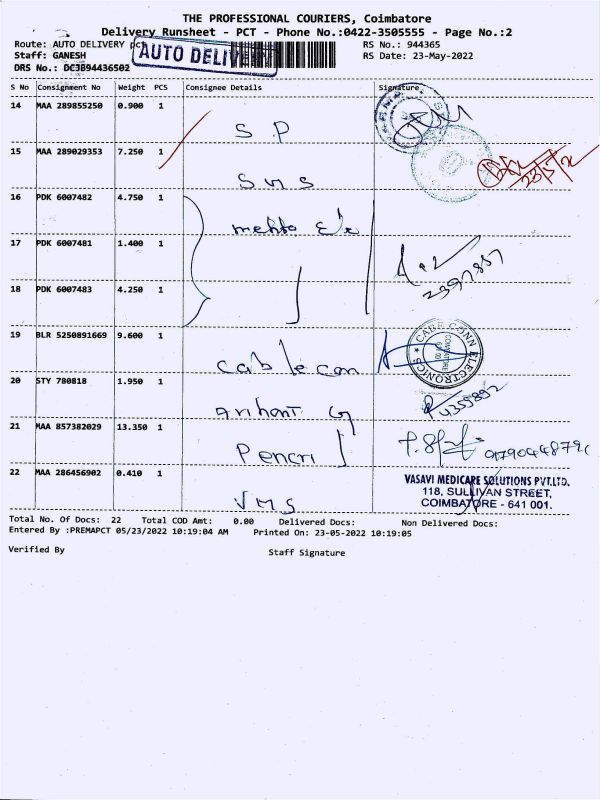 THE PROFESSIONAL COURIERS, Coimbatore
Delivery Runsheet - PCT - Phone No.:0422-3505555 - Page No.:2
Route: AUTO DELIVERY pct RS No.: 944365
Staff: GANESH AUTO DELIVERY RS Date: 23-May-2022
DRS No.: DCJB94436502
S No Consignment No Weight PCS Consignee Details Signature
14 MAA 289855250 0.900 1
S.P
15 MAA 289029353 7.250 1
SMS 23/5/22
16 PDK 6007482 4.750 1
mehta
17 PDK 6007481 1.400 1
2397857
18 PDK 6007483 4.250 1
19 BLR 5250891669 9.600 1
cablecon CABE CONN ELECTRONICS
20 STY 780818 1.950 1
Arihant 4359892
21 MAA 857382029 13.350 1
Pencri
22 MAA 286456902 0.410 1 VASAVI MEDICARE SOLUTIONS PVT.LTD.
118, SULLIVAN STREET,
VMS COIMBATORE - 641 001.
Total No. Of Docs: 22 Total COD Amt: 0.00 Delivered Docs: Non Delivered Docs:
Entered By :PREMAPCT 05/23/2022 10:19:04 AM Printed On: 23-05-2022 10:19:05
Verified By Staff Signature